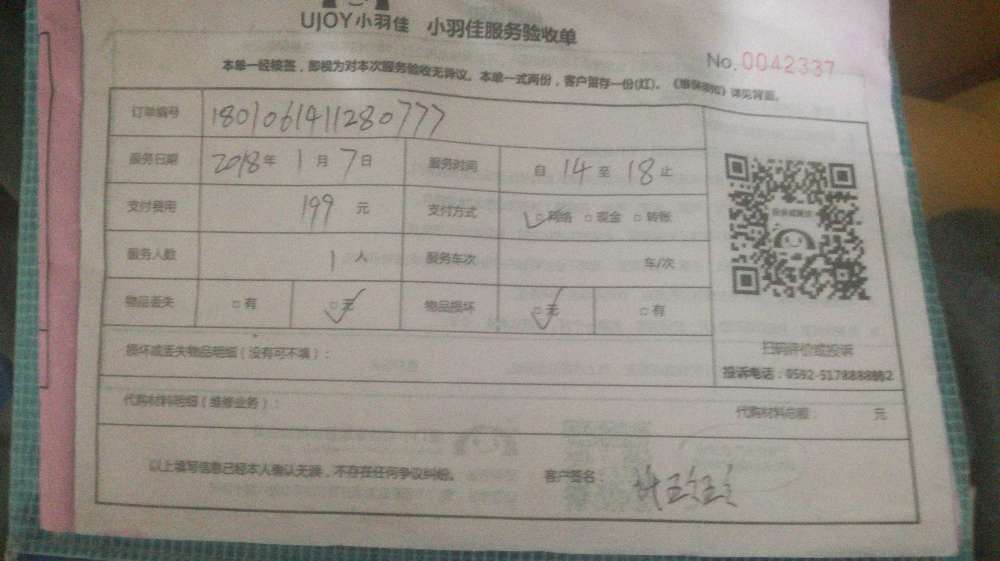 UJOY小羽佳 小羽佳服务验收单
No. 0042337
本单一经核签，即视为对本次服务验收无异议。本单一式两份，客户留存一份(红)。《维保须知》详见背面。
订单编号 1801061411280777
服务日期 2018年 1月 7日 服务时间 自 14 至 18 止
支付费用 199 元 支付方式 □网络 □现金 □转账
服务人数 1 人 服务车次 车/次
物品丢失 □有 □无 物品损坏 □无 □有
损坏或丢失物品明细（没有可不填）：
扫码评价或投诉
投诉电话：0592-5178888转2
代购材料明细（维修业务）： 代购材料总额 元
以上填写信息已经本人确认无误，不存在任何争议纠纷。 客户签名：